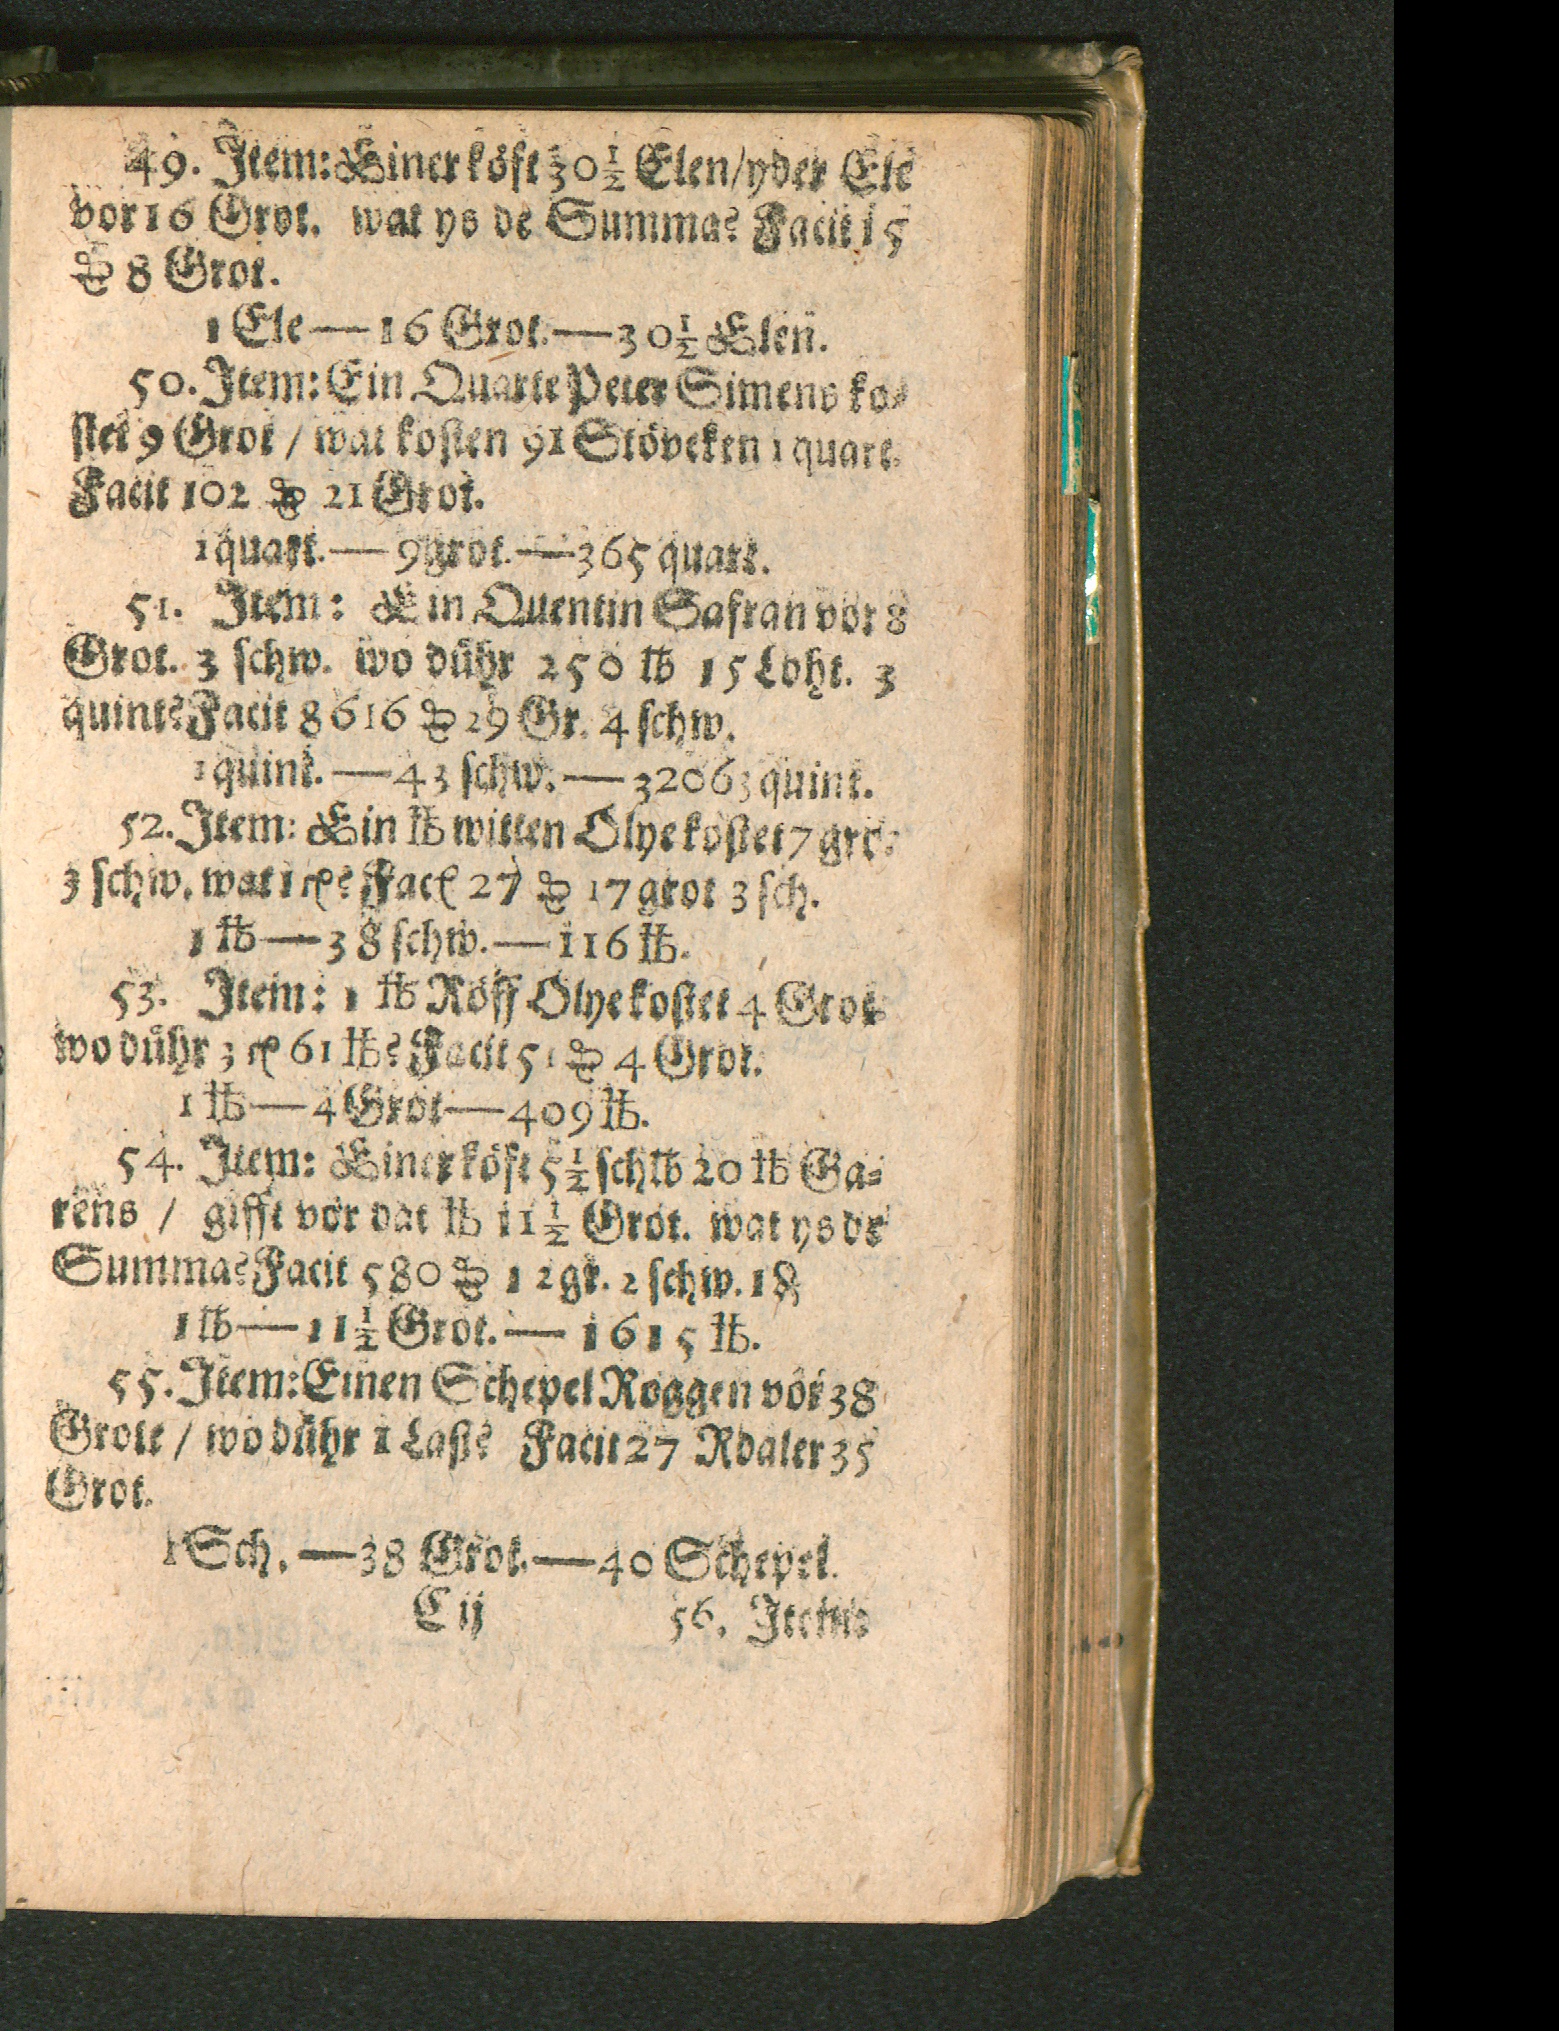 49. Item: Einer köft 30 1/2 Elen/ yder Ele
vor 16 Grot. wat ys de Summa? Facit 15
₰ 8 Grot.
1 Ele — 16 Grot. — 30 1/2 Elen.
50. Item: Ein Quarte Peter Simens ko⸗
stet 9 Grot / wat kosten 91 Stöveken 1 quart.
Facit 102 ₰ 21 Grot.
1 quart. — 9 grot. — 365 quart.
51. Item: Ein Quentin Safran vor 8
Grot. 3 schw. wo dühr 250 ℔ 15 Loht. 3
quint? Facit 8616 ₰ 29 Gr. 4 schw.
1 quint. — 43 schw. — 32063 quint.
52. Item: Ein ℔ witten Olye kostet 7 grt.
3 schw. wat 1 ? Fac 27 ₰ 17 grot 3 sch.
1 ℔ — 38 schw. — 116 ℔.
53. Item: 1 ℔ Röff Olye kostet 4 Grot
wo dühr 3 61 ℔? Facit 51 ₰ 4 Grot.
1 ℔ — 4 Grot — 409 ℔.
54. Item: Einer köft 5 1/2 sch℔ 20 ℔ Ga⸗
rens / gifft vor dat ℔ 11 1/2 Grot. wat ys de
Summa? Facit 580 ₰ 12 gr. 2 schw. 1 ₰
1 ℔ — 11 1/2 Grot. — 1615 ℔.
55. Item: Einen Schepel Roggen vör 38
Grote / wo dühr 1 Last? Facit 27 Rdaler 35
Grot.
1 Sch. — 38 Grot. — 40 Schepel.
C ij 56. Item: